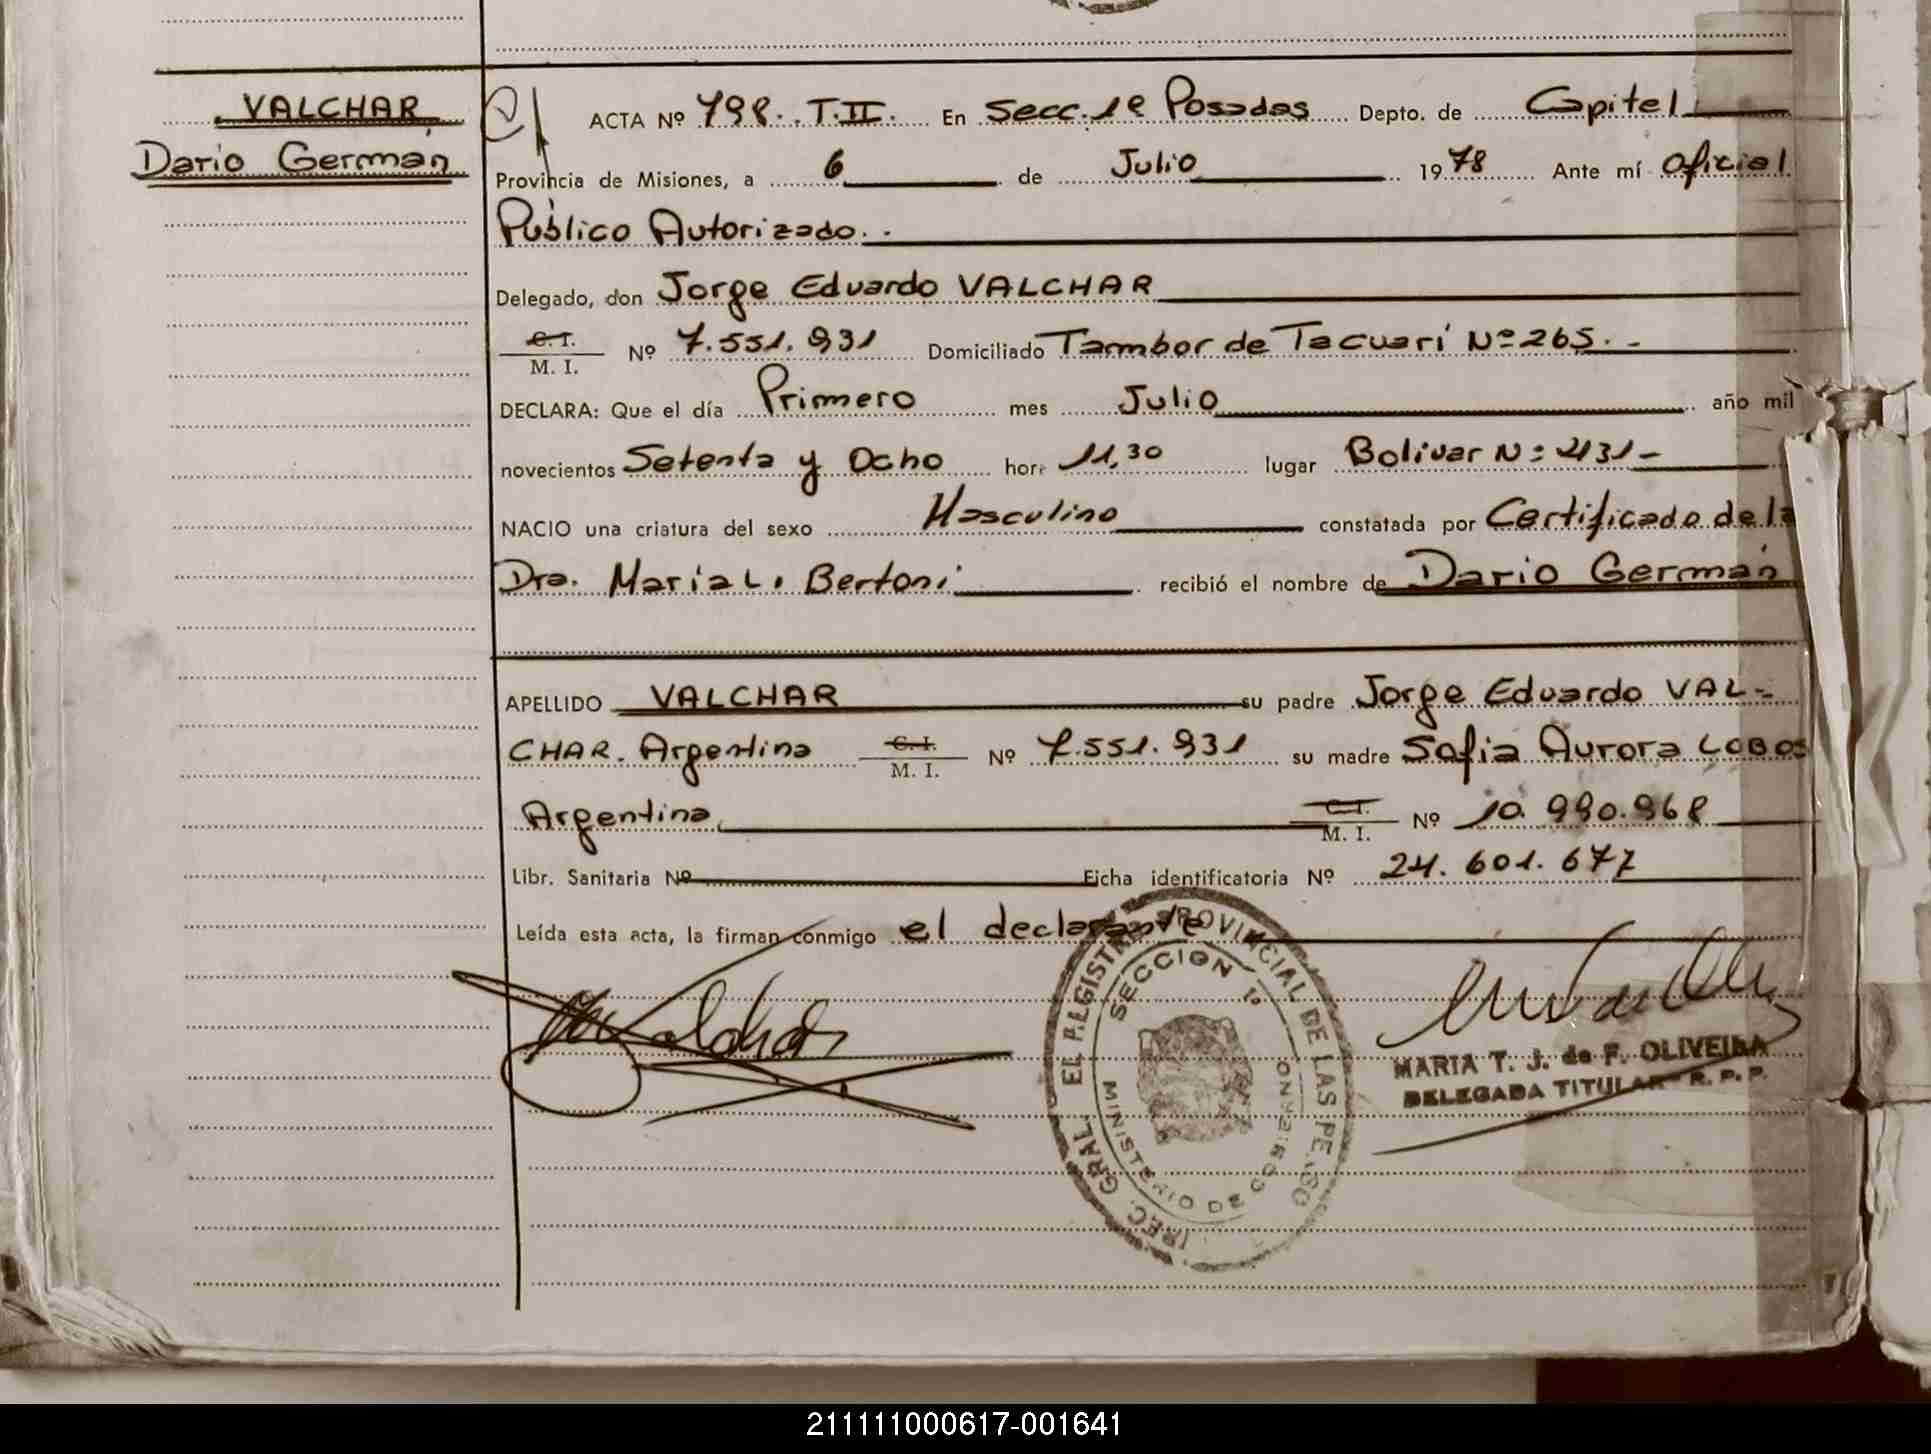 VALCHAR
Dario Germán
ACTA Nº 798. T.II. En Secc. 1º Posadas Depto. de Capital
Provincia de Misiones, a 6 de Julio 1978 Ante mí Oficial
Público Autorizado.-
Delegado, don Jorge Eduardo VALCHAR
C. I.
M. I. Nº 7.551.931 Domiciliado Tambor de Tacuarí Nº 265.-
DECLARA: Que el día Primero mes Julio año mil
novecientos Setenta y Ocho hora 11,30 lugar Bolivar Nº 2131-
NACIO una criatura del sexo Masculino constatada por Certificado de la
Dra. Maria L. Bertoni recibió el nombre de Dario Germán
APELLIDO VALCHAR su padre Jorge Eduardo VAL-
CHAR. Argentino C. I. M. I. Nº 7.551.931 su madre Sofia Aurora LOBOS
Argentina C. I. M. I. Nº 10.990.968
Libr. Sanitaria Nº Ficha identificatoria Nº 24.601.677
Leída esta acta, la firman conmigo el declarante
Valchar
SECCION 1º
MINISTERIO DE GOBIERNO
MARIA T. J. de F. OLIVEIRA
DELEGADA TITULAR R. P. P.
211111000617-001641